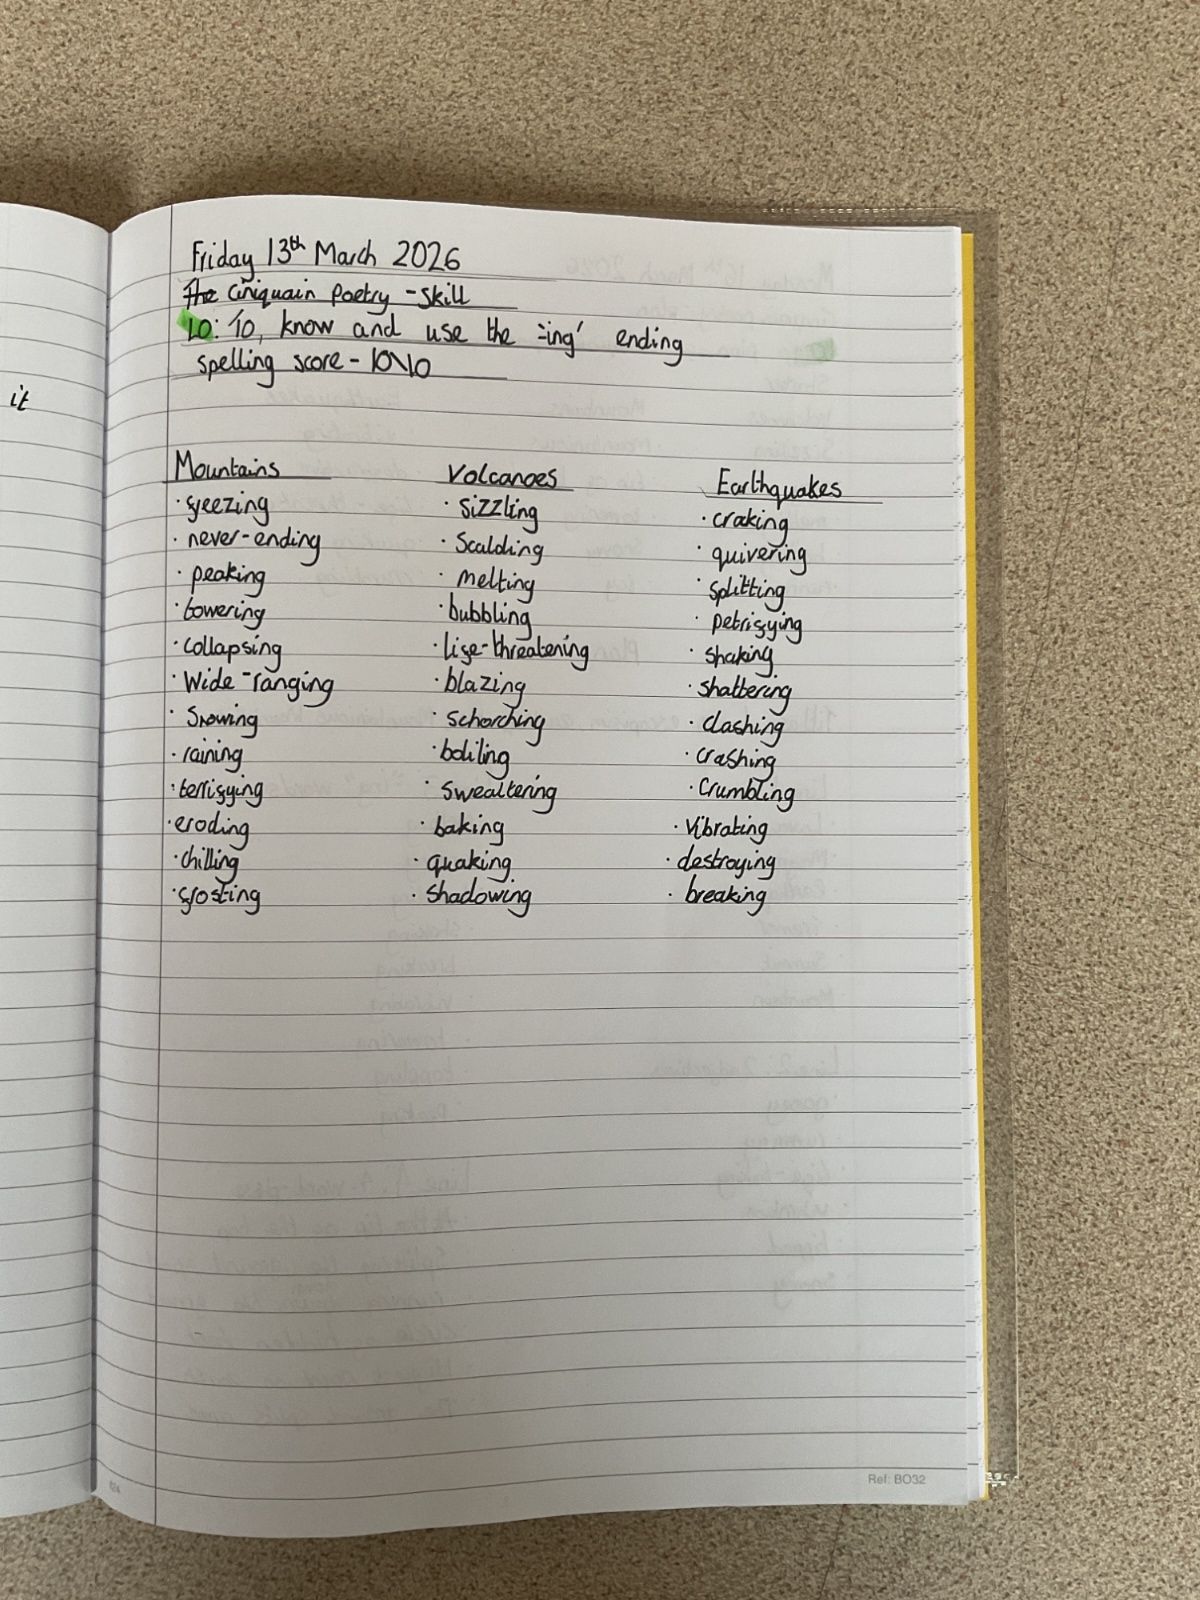 it
Friday 13th March 2026
The Ciniquain Poetry - Skill
LO: To, know and use the '-ing' ending
spelling score - 10\10
Mountains
· freezing
· never-ending
· peaking
· towering
· collapsing
· Wide-ranging
· Snowing
· raining
· terrifying
· eroding
· chilling
· frosting
Volcanoes
· Sizzling
· Scalding
· melting
· bubbling
· life-threatening
· blazing
· schorching
· boiling
· swealtering
· baking
· quaking
· shadowing
Earthquakes
· craking
· quivering
· splitting
· petrifying
· shaking
· shattering
· clashing
· crashing
· Crumbling
· Vibrating
· destroying
· breaking
Ref: BO32